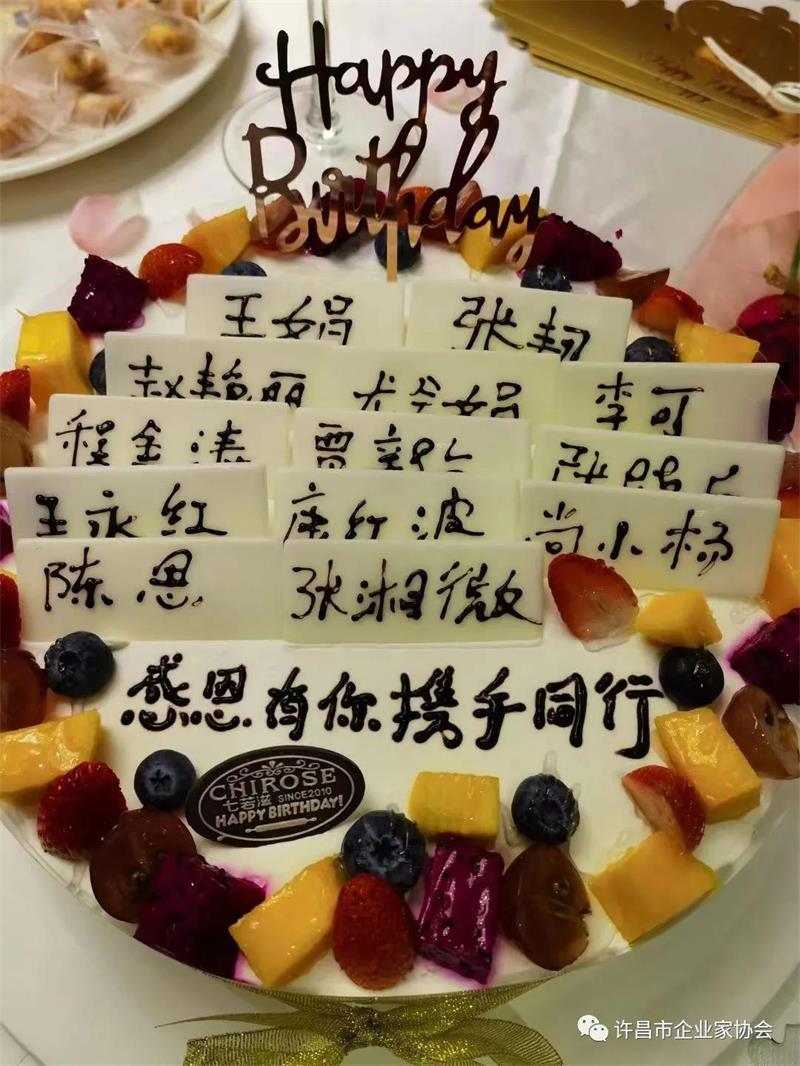 Happy
Birthday
王娟 张韧
赵艳丽 李可
程金涛
王永红 庞红波 尚小杨
陈恩 张湘微
感恩有你携手同行
CHIROSE
七若滋 SINCE2010
HAPPY BIRTHDAY!
许昌市企业家协会